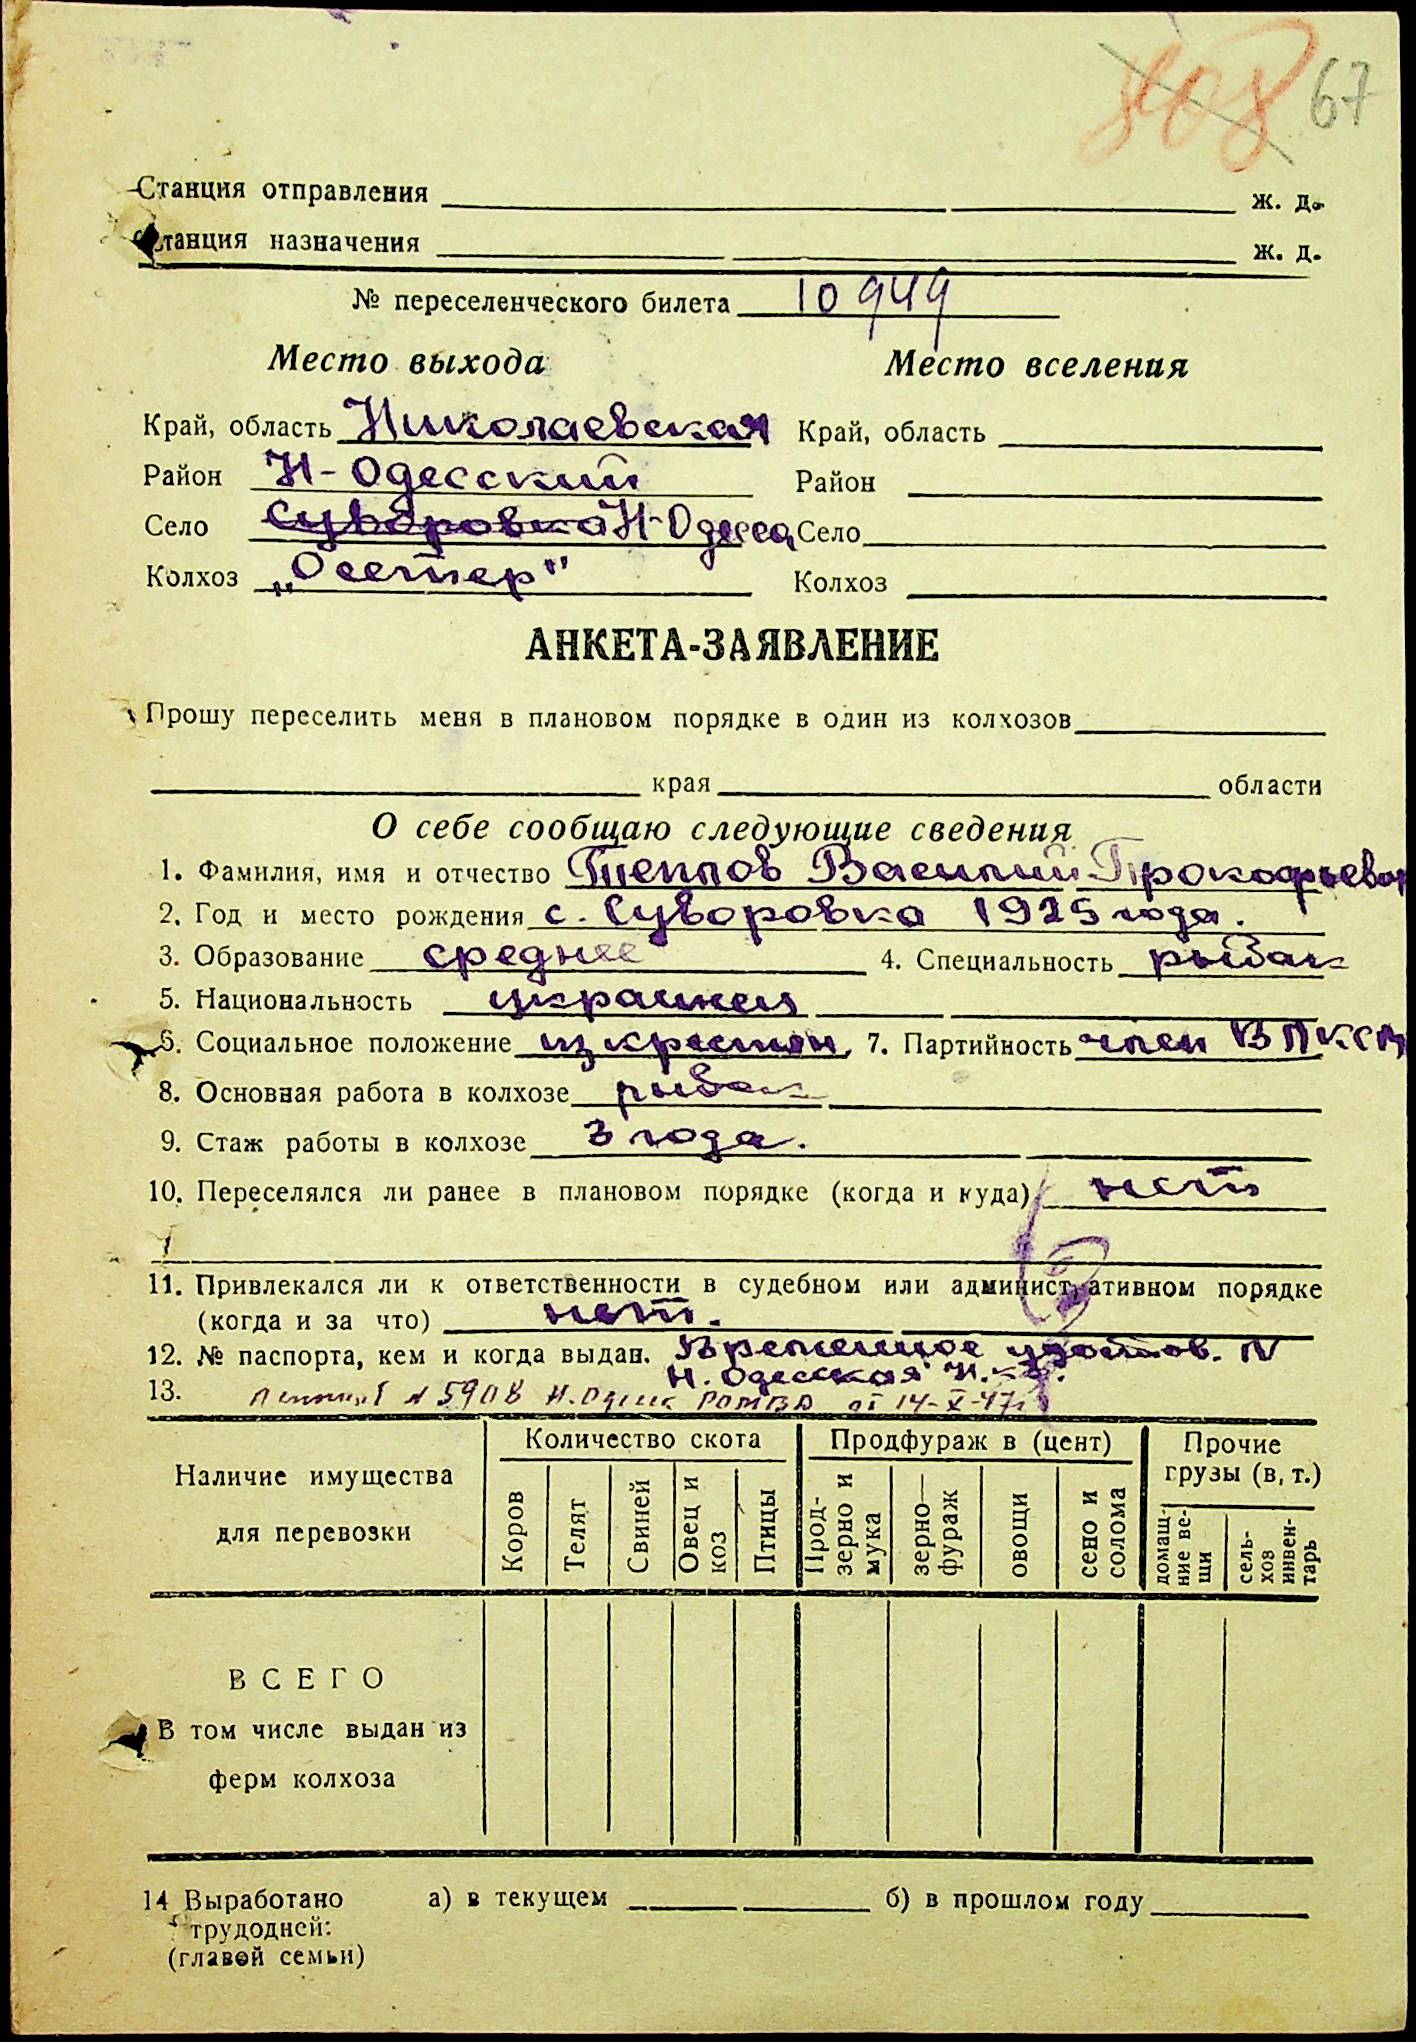 808 67
Станция отправления ж. д.
Станция назначения ж. д.
№ переселенческого билета 10949
Место выхода Место вселения
Край, область Николаевская Край, область
Район Н-Одесский Район
Село Суворовка Н-Одесса Село
Колхоз „Осетер" Колхоз
АНКЕТА-ЗАЯВЛЕНИЕ
Прошу переселить меня в плановом порядке в один из колхозов
края области
О себе сообщаю следующие сведения
1. Фамилия, имя и отчество Теплов Василий Прокофьевич
2. Год и место рождения с. Суворовка 1925 года.
3. Образование среднее 4. Специальность рыбак
5. Национальность украинец
6. Социальное положение из крестьян, 7. Партийность член ВЛКСМ
8. Основная работа в колхозе рыбак
9. Стаж работы в колхозе 3 года.
10. Переселялся ли ранее в плановом порядке (когда и куда) нет
11. Привлекался ли к ответственности в судебном или административном порядке
(когда и за что) нет.
12. № паспорта, кем и когда выдан. Временное удостов. N
Н. Одесская
13. N 5908 Н. Одесск РОМВД от 14-X-47г
Наличие имущества для перевозки
Количество скота Продфураж в (цент) Прочие грузы (в, т.)
Коров Телят Свиней Овец и коз Птицы Прод-зерно и мука зерно-фураж овощи сено и солома домаш-ние ве-щи сель-хоз инвен-тарь
ВСЕГО
В том числе выдан из
ферм колхоза
14 Выработано а) в текущем б) в прошлом году
трудодней:
(главой семьи)